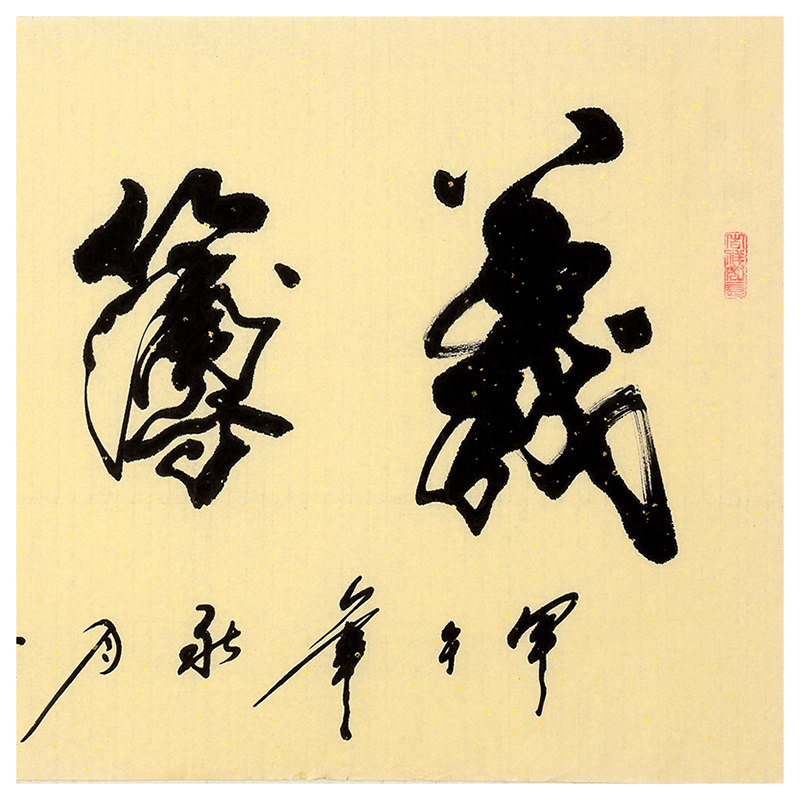 義薄
甲午年秋月